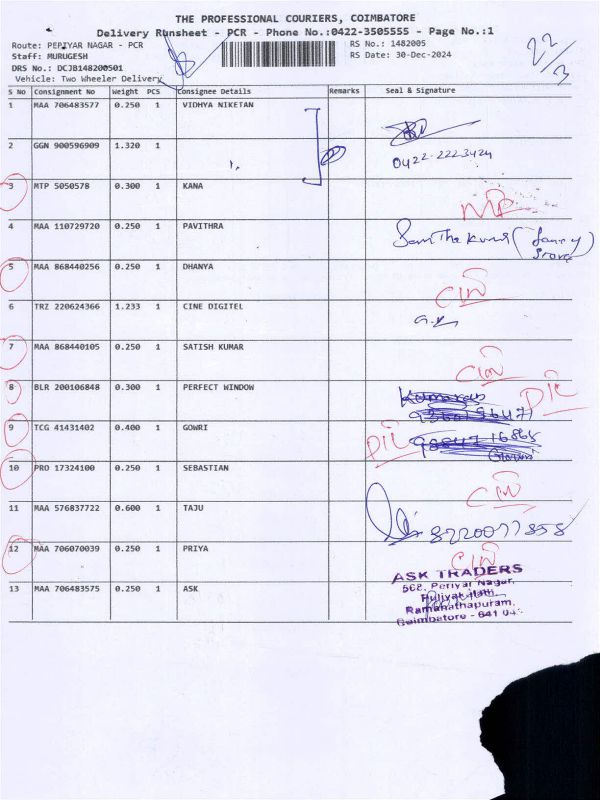 THE PROFESSIONAL COURIERS, COIMBATORE
Delivery Runsheet - PCR - Phone No.:0422-3505555 - Page No.:1
Route: PERIYAR NAGAR - PCR RS No.: 1482005
Staff: MURUGESH RS Date: 30-Dec-2024
DRS No.: DCJB148200501
Vehicle: Two Wheeler Delivery
22/3
S No Consignment No Weight PCS Consignee Details Remarks Seal & Signature
1 MAA 706483577 0.250 1 VIDHYA NIKETAN
2 GGN 900596909 1.320 1 0422-2223424
3 MTP 5050578 0.300 1 KANA
4 MAA 110729720 0.250 1 PAVITHRA
5 MAA 868440256 0.250 1 DHANYA
6 TRZ 220624366 1.233 1 CINE DIGITEL
7 MAA 868440105 0.250 1 SATISH KUMAR
8 BLR 200106848 0.300 1 PERFECT WINDOW
9 TCG 41431402 0.400 1 GOWRI
10 PRO 17324100 0.250 1 SEBASTIAN
11 MAA 576837722 0.600 1 TAJU 8220077858
12 MAA 706070039 0.250 1 PRIYA
13 MAA 706483575 0.250 1 ASK
ASK TRADERS
Periyar Nagar,
Ramanathapuram,
Coimbatore - 641 04